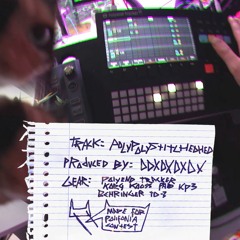 TRACK: POLYPOLYSTITCHEDHED
PRODUCED BY: DDXDXDXDX
GEAR: POLYEND TRACKER
KORG KAOSS PAD KP3
BEHRINGER TD-3
MADE FOR
POLIFONIA
CONTEST